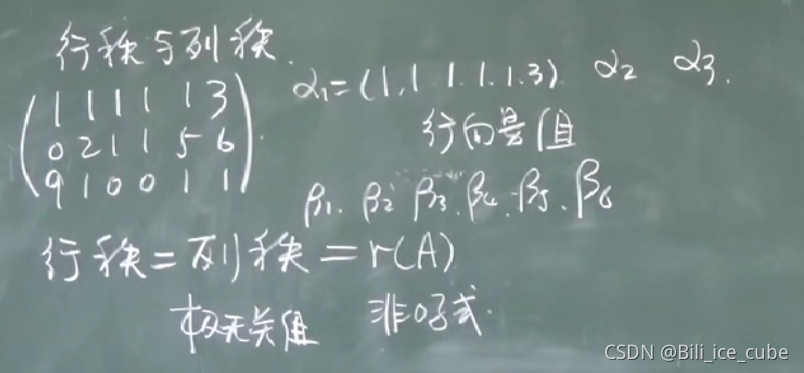 行秩与列秩.
1 1 1 1 1 3
0 2 1 1 5 6
9 1 0 0 1 1
α1=(1,1 1.1.1.3) α2 α3.
行向量组
β1. β2 β3. β4. β5. β6
行秩=列秩=r(A)
极无关组 非0子式.
CSDN @Bili_ice_cube